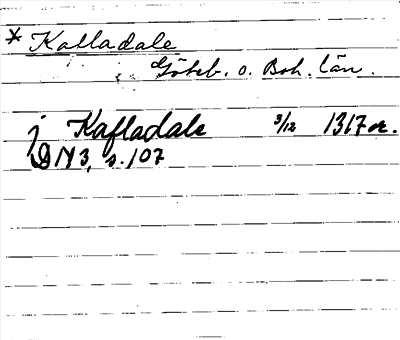 * Kalladale
Göteb. o. Boh. län.
j Kafladale 3/12 1317 or.
DN 3, s. 107